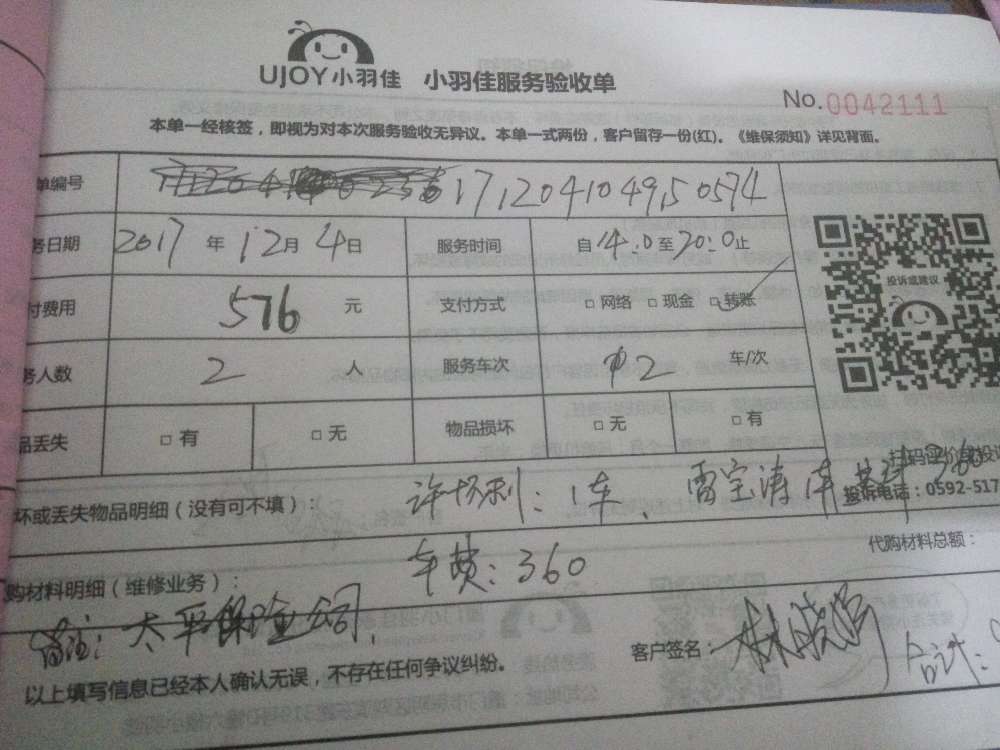 UJOY小羽佳 小羽佳服务验收单
No.0042111
本单一经核签，即视为对本次服务验收无异议。本单一式两份，客户留存一份(红)。《维保须知》详见背面。
单编号 1712041049150574
务日期 2017 年 12 月 4 日 服务时间 自 14:0 至 20:0 止
付费用 576 元 支付方式 □ 网络 □ 现金 □ 转账
投诉或建议
务人数 2 人 服务车次 2 车/次
品丢失 □ 有 □ 无 物品损坏 □ 无 □ 有
坏或丢失物品明细（没有可不填）： 1车、雷宝涛 1车
投诉电话：0592-517
购材料明细（维修业务）： 车费：360
代购材料总额：
备注：太平保险公司，
客户签名： 合计：
以上填写信息已经本人确认无误，不存在任何争议纠纷。